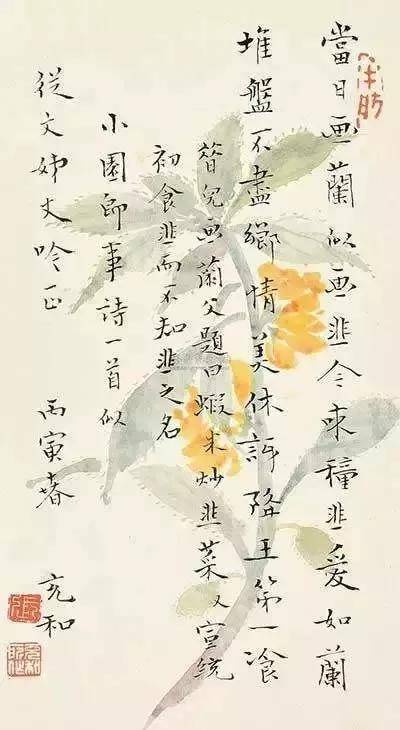 當日画蘭似画韭今来種韭愛如蘭
堆盤不盡鄉情美休訝降王第一飡
昔兒画蘭父題曰蝦米炒韭菜又宣統
初食韭而不知韭之名
小園即事詩一首似
從文姊丈吟正
丙寅春 充和